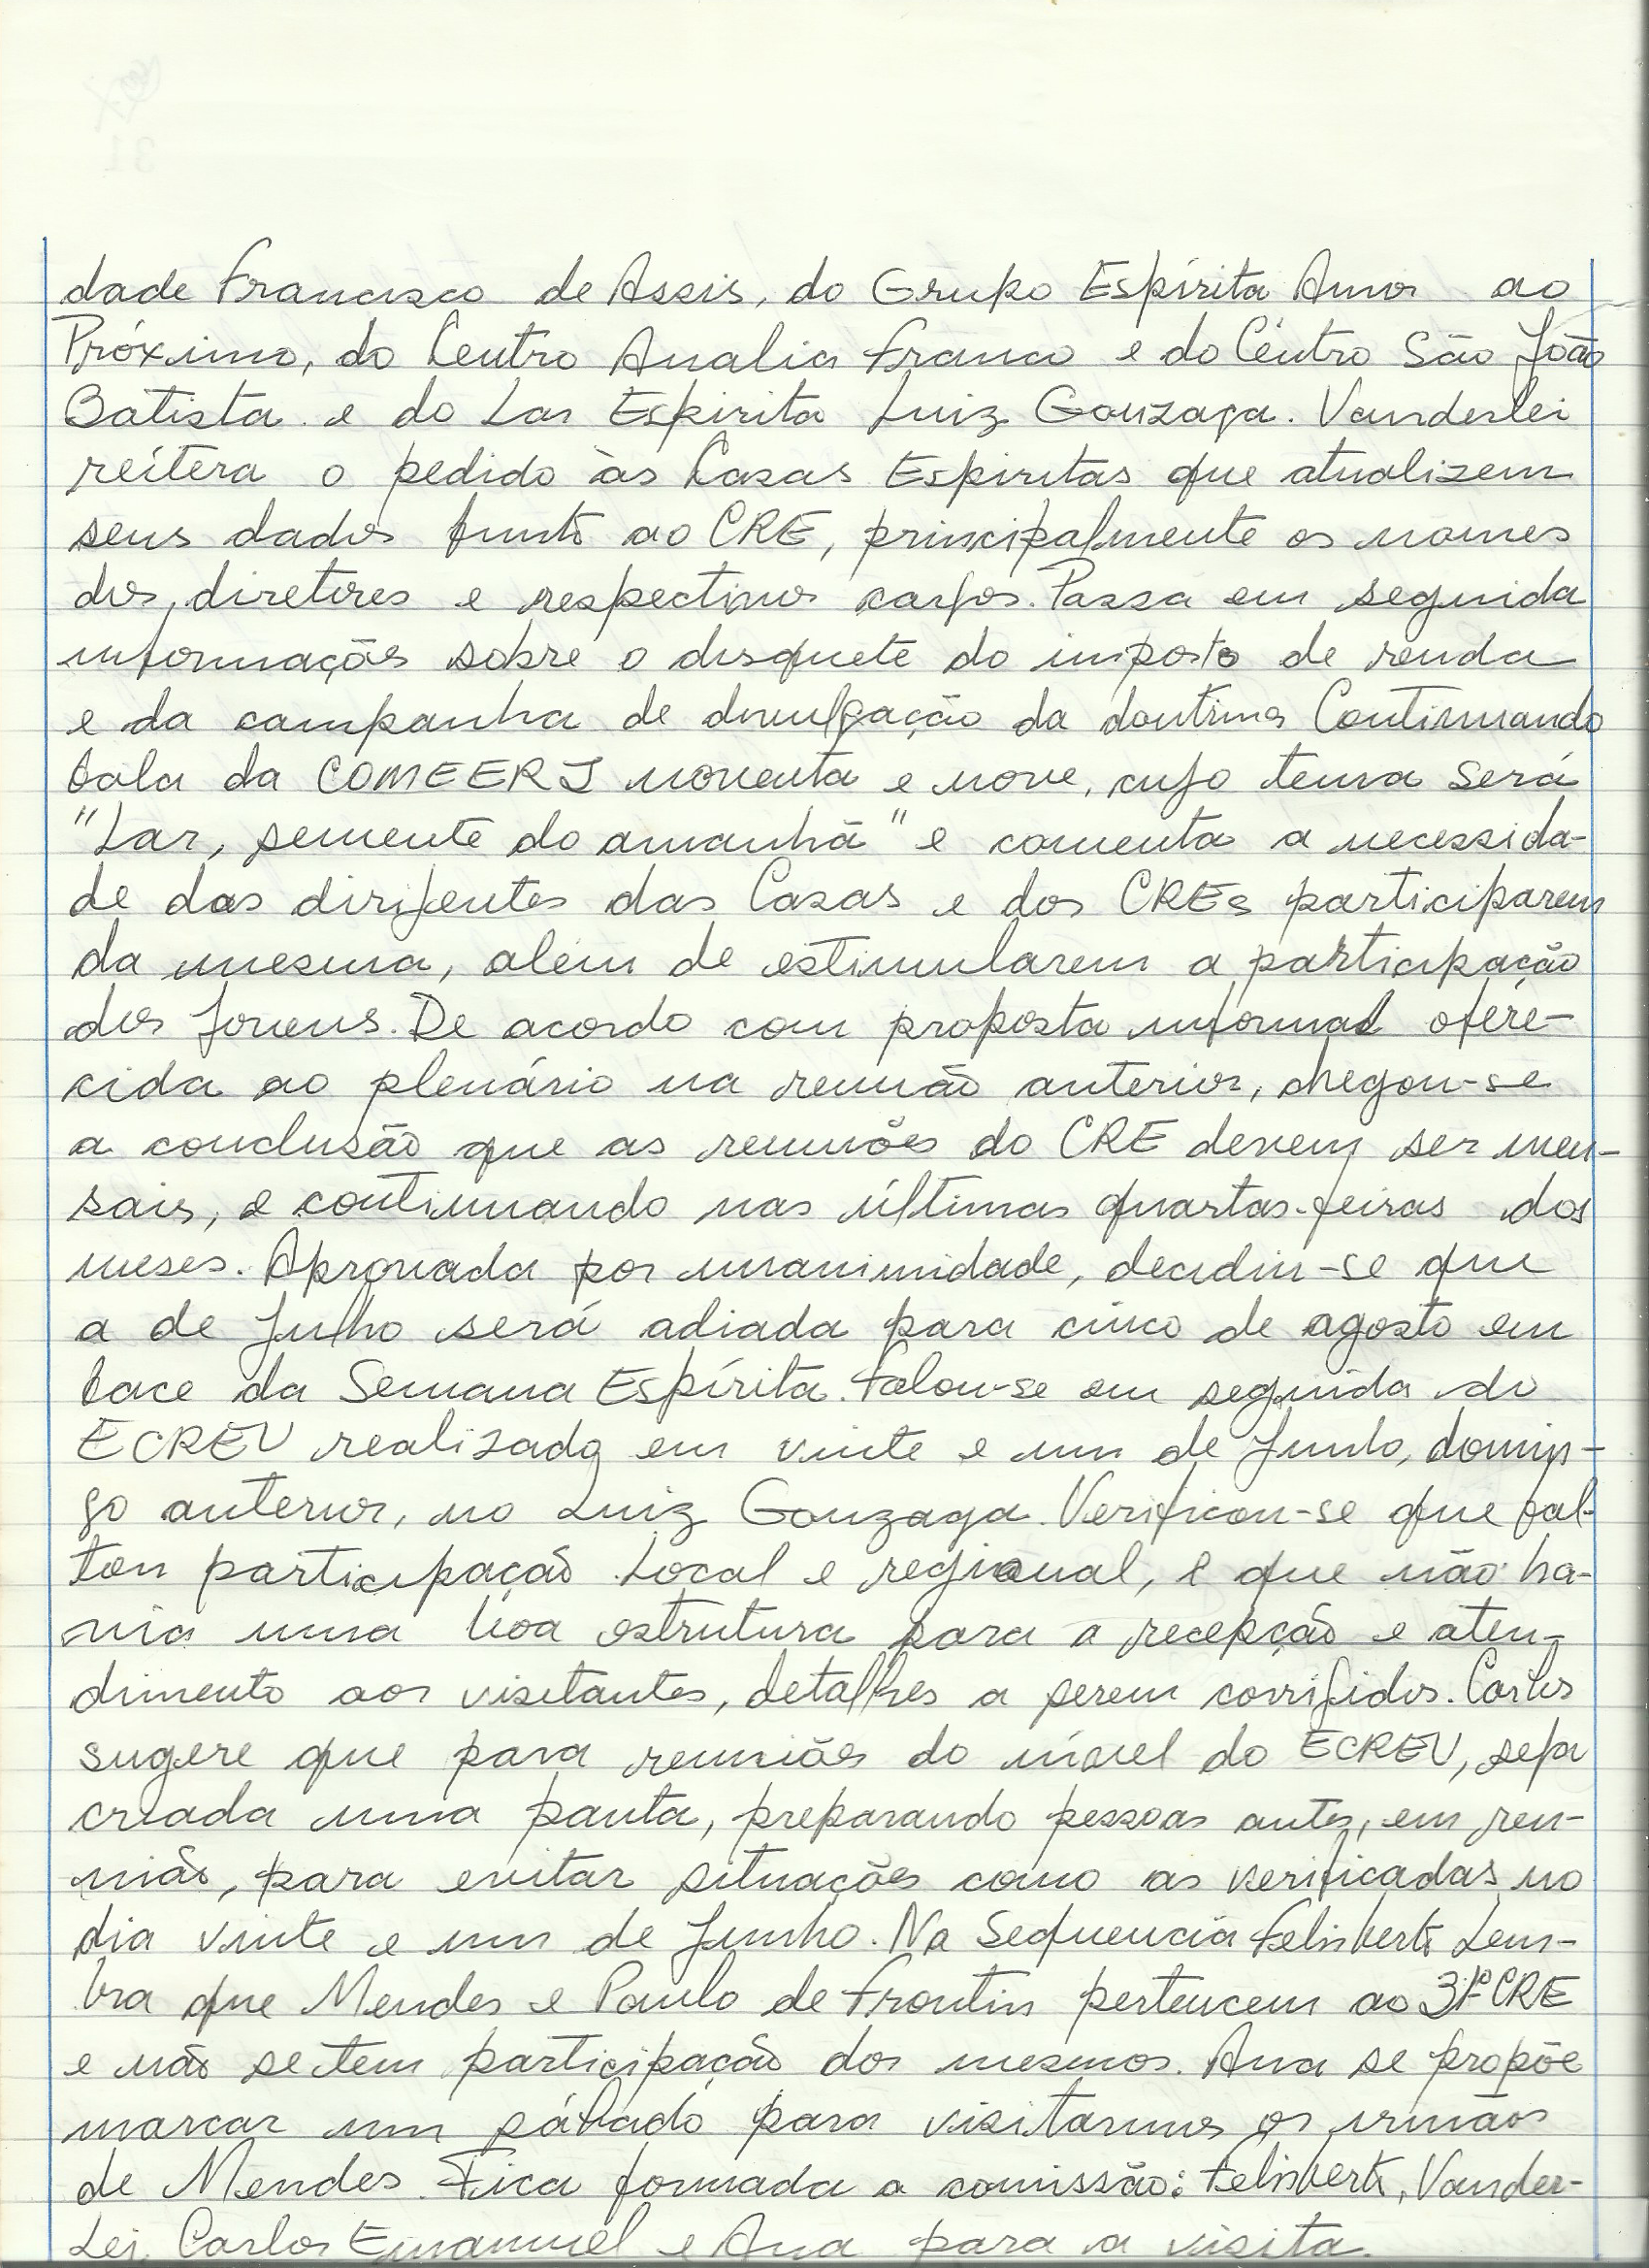 dade Francisco de Assis, do Grupo Espírita Amor ao
Próximo, do Centro Analia Franco e do Centro São João
Batista e do Lar Espirita Luiz Gonzaga. Vanderlei
reitera o pedido às Casas Espiritas que atualizem
seus dados junto ao CRE, principalmente os nomes
dos diretores e respectivos cargos. Passa em seguida
informações sobre o disquete do imposto de renda
e da campanha de divulgação da doutrina Continuando
fala da COMEERJ noventa e nove, cujo tema será
"Lar, semente do amanhã" e comenta a necessida-
de das dirigentes das Casas e dos CREs participarem
da mesma, além de estimularem a participação
dos jovens. De acordo com proposta informal ofere-
cida ao plenário na reunião anterior, chegou-se
a conclusão que as reuniões do CRE devem ser men-
sais, e continuando nas últimas quartas-feiras dos
meses. Aprovada por unanimidade, decidiu-se que
a de Julho será adiada para cinco de agosto em
face da Semana Espírita. Falou-se em seguida do
ECREV realizado em vinte e um de Junho, domin-
go anterior, no Luiz Gonzaga. Verificou-se que fal-
tou participação local e regional, e que não ha-
via uma boa estrutura para a recepção e aten-
dimento aos visitantes, detalhes a serem corrigidos. Carlos
sugere que para reuniões do nível do ECREV, seja
criada uma pauta, preparando pessoas antes, em reu-
nião, para evitar situações como as verificadas no
dia vinte e um de Junho. Na Sequencia Felisberto Lem-
bra que Mendes e Paulo de Frontin pertencem ao 31º CRE
e não se tem participação dos mesmos. Ana se propõe
marcar um sábado para visitarmos os irmãos
de Mendes. Fica formada a comissão: Felisberto, Vander-
Lei, Carlos Emanuel e Ana para a visita.
31